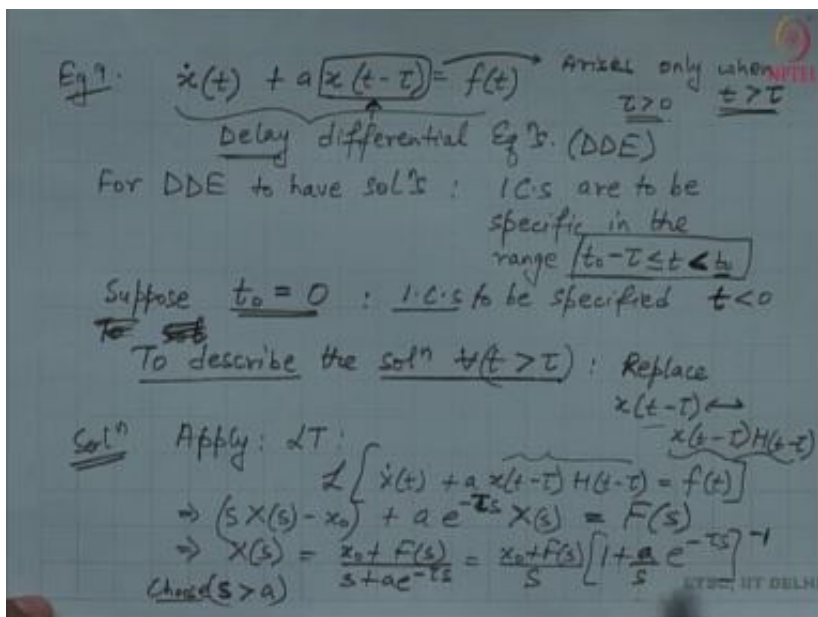 Eg 9. ẋ(t) + a x(t-τ) = f(t) → Arises only when
τ>0 t>τ
NPTEL
Delay differential Eqⁿs. (DDE)
For DDE to have solⁿs : I.C.s are to be
specific in the
range t₀-τ≤t<t₀
Suppose t₀ = 0 : I.C.s to be specified t<0
To describe the solⁿ ∀(t>τ) : Replace
x(t-τ) ↔
x(t-τ)H(t-τ)
Solⁿ Apply: LT:
L[ẋ(t) + a x(t-τ) H(t-τ) = f(t)]
⇒ (s X(s) - x₀) + a e^{-τs} X(s) = F(s)
⇒ X(s) = (x₀+F(s))/(s+ae^{-τs}) = (x₀+F(s))/s [1+a/s e^{-τs}]^{-1}
Choose(s>a)
ETSC, IIT DELHI